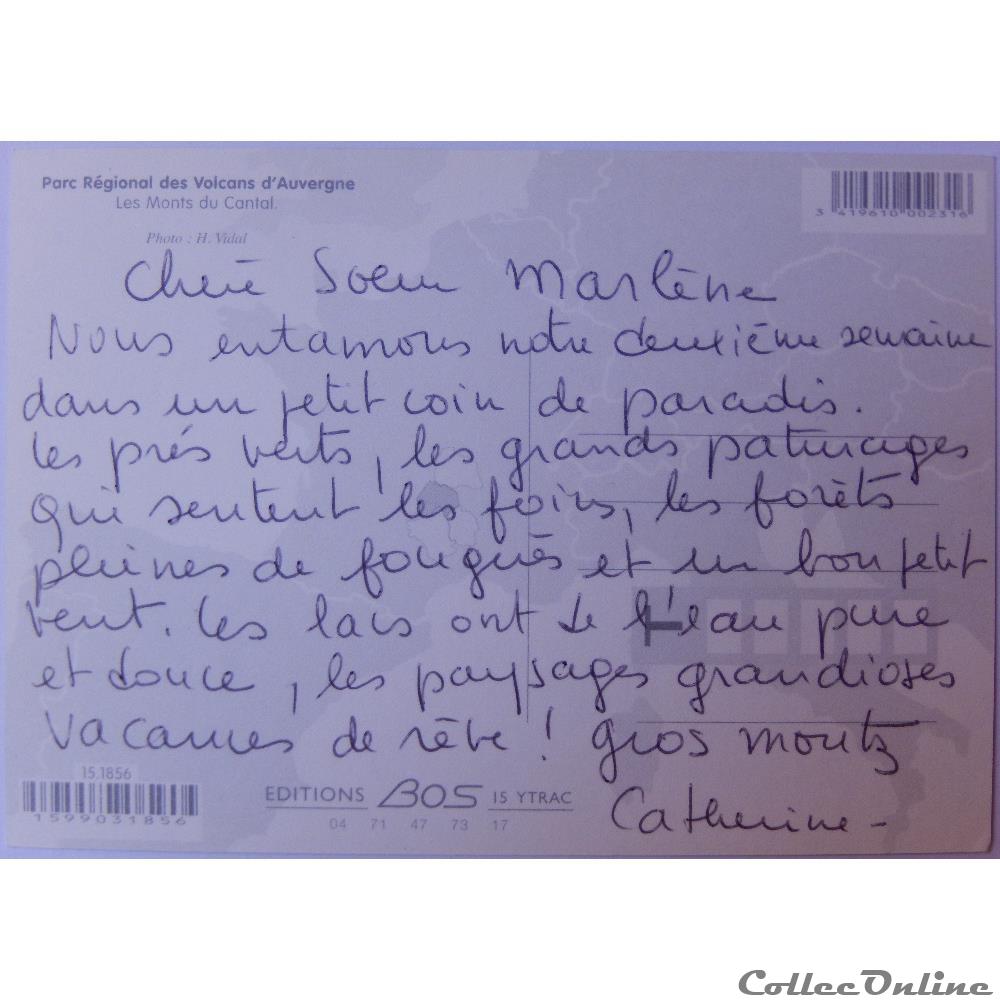 Parc Régional des Volcans d'Auvergne
Les Monts du Cantal.
Photo : H. Vidal
3 419610 002316
Chère Soeur Marlène
Nous entamons notre deuxième semaine
dans un petit coin de paradis.
Les prés verts, les grands paturages
qui sentent les foins, les forêts
pleines de fougués et un bon petit
vent. Les lacs ont de l'eau pure
et douce, les paysages grandioses
Vacances de rêve ! gros
Catherine -
15.1856
1599031856
EDITIONS BOS 15 YTRAC
04 71 47 73 17
CollecOnline